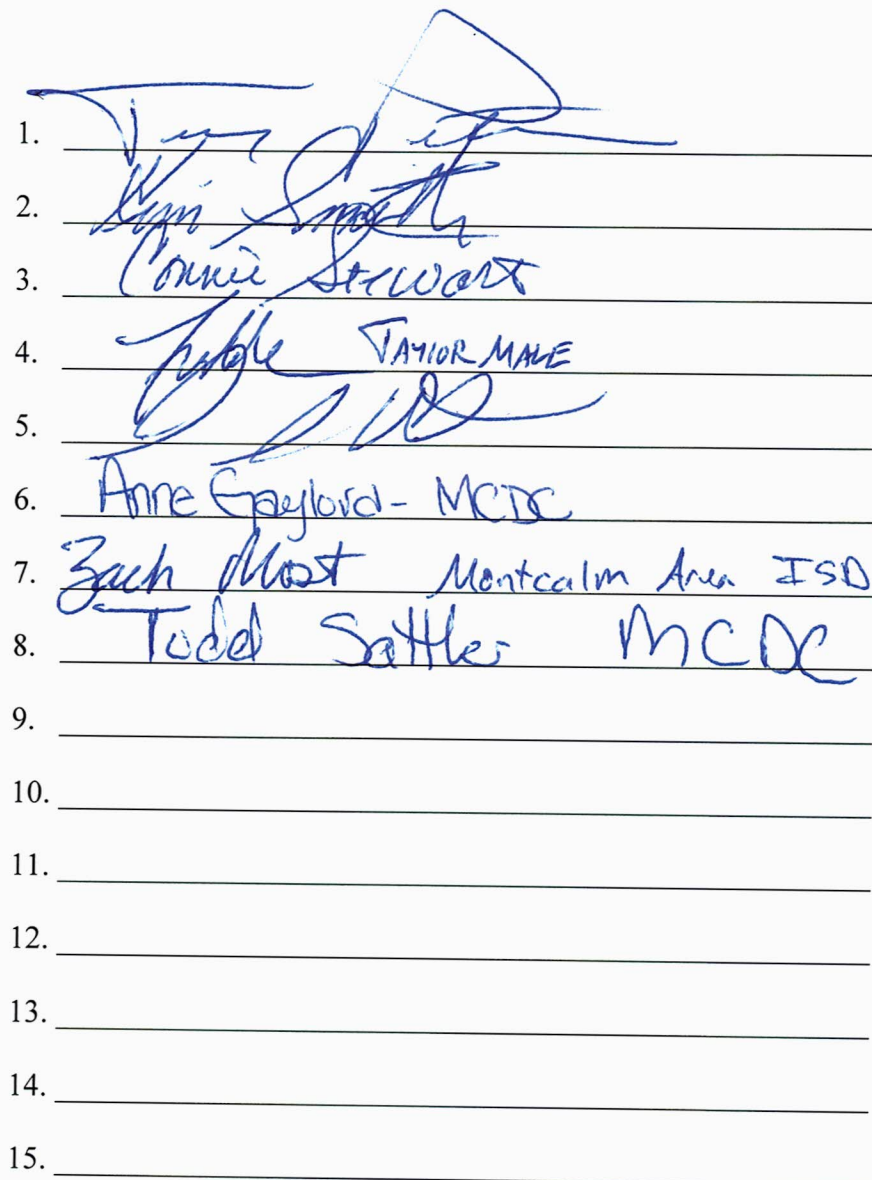 1.
2. Kim Smith
3. Connie Stewart
4. TAYLOR MALE
5.
6. Anne Gaylord - MCDC
7. Zach Most Montcalm Area ISD
8. Todd Sattler MCDC
9.
10.
11.
12.
13.
14.
15.